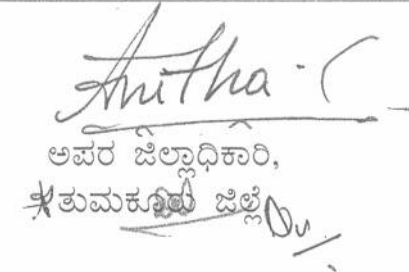 Anitha. C
ಅಪರ ಜಿಲ್ಲಾಧಿಕಾರಿ,
ತುಮಕೂರು ಜಿಲ್ಲೆ